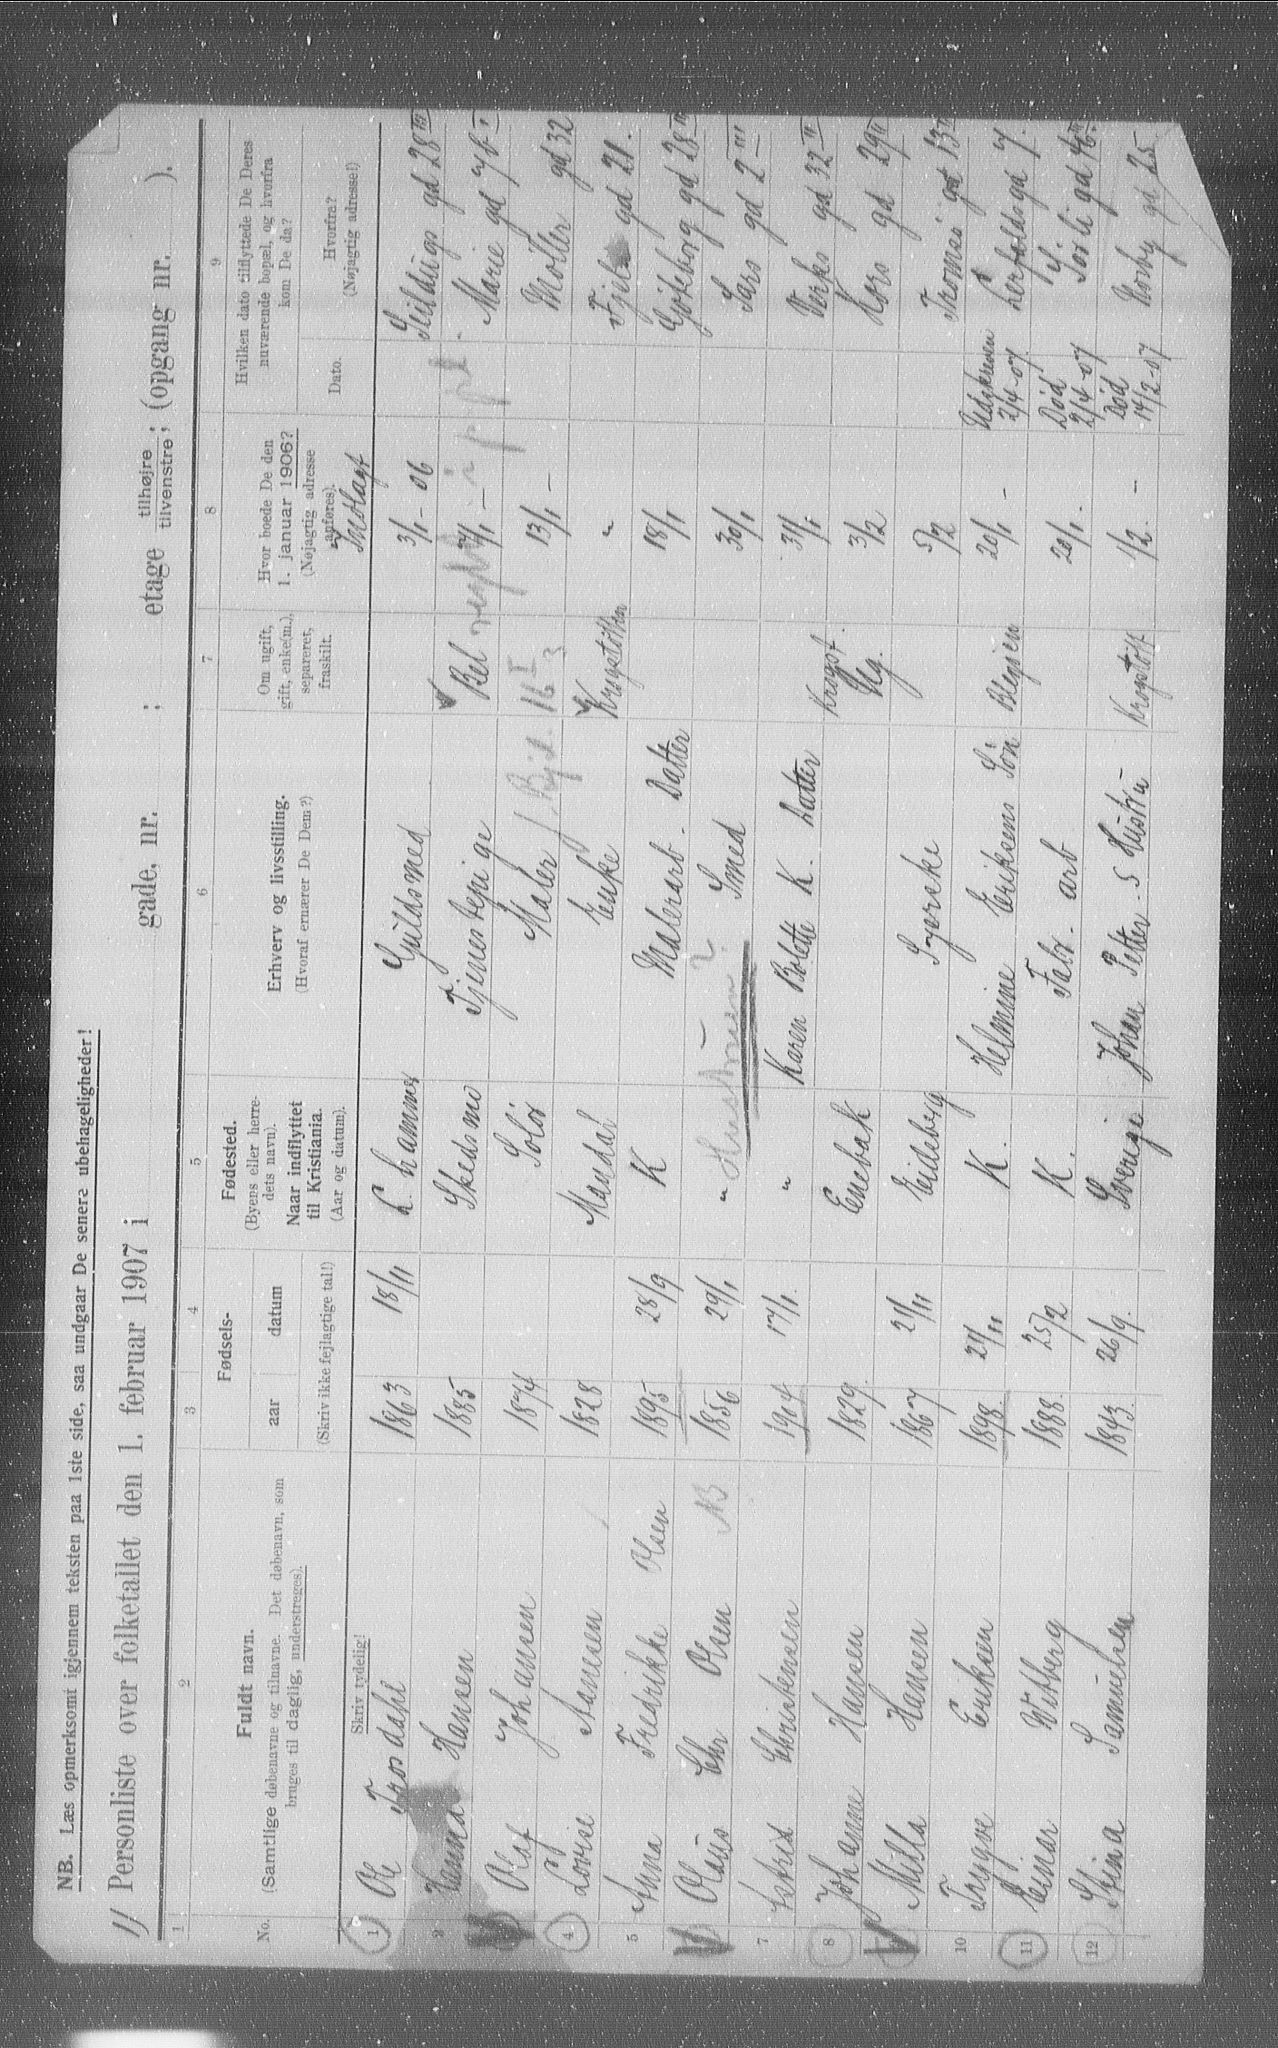 NB. Læs opmerksomt igjennem teksten paa 1ste side, saa undgaar De senere ubehageligheder!
1/ Personliste over folketallet den 1. februar 1907 i gade, nr. ; etage tilhøjre ; (opgang nr. ).
tilvenstre
1 2 3 4 5 6 7 8 9
No.
Fuldt navn.
(Samtlige døbenavne og tilnavne. Det døbenavn, som
bruges til daglig, understreges).
Skriv tydelig!
Fødsels-
aar datum
(Skriv ikke fejlagtige tal!)
Fødested.
(Byens eller herre-
dets navn).
Naar indflyttet
til Kristiania.
(Aar og datum).
Erhverv og livsstilling.
(Hvoraf ernærer De Dem?)
Om ugift,
gift, enke(m.),
separeret,
fraskilt.
Hvor boede De den
1. januar 1906?
(Nøjagtig adresse
anføres).
Indlagt
Hvilken dato tilflyttede De Deres
nuværende bopæl, og hvorfra
kom De da?
Dato.
Hvorfra?
(Nøjagtig adresse!)
1 Ole Frosdahl 1863 18/11 L. hammer Guldsmed 3/1 - 06 Seildugs gd 28 III
2 Hanna Hansen 1885 Skedsmo Tjenestepige Bel 7/1 - Marie gd 7b I
Olaf Johansen 1874 Solør Maler 13/1 - Møller gd 32
4 Lovise Aanesen 1828 Mandal Enke Krogstøtten " gd 21.
5 Anna Fredrikke Olsen 1895 28/9 K Malerarb. Datter 18/1 Gøteborg gd 28 III
Olaus Chr Olsen NB 1856 29/1 " Hustruen? Smed 30/1 Sars gd 2 III
7 Astrid Christensen 1904 17/1. " Karen Bolette K. Datter 31/1 Verks gd 32 II
8 Johanne Hansen 1829 Enebak Krogst. 3/2 Kors gd 29 II
Milla Hansen 1867 21/11 Eideberg Syerske Ug. 5/2 Tromsø gd 13 II
10 Trygve Eriksen 1898. 21/11 K. Helmine Eriksen Søn Blegien 20/1 - Udskreven 2/4-07. Herfoldsgd 7.
11 Einar Witberg 1888. 25/2 K. Fabr. arb 20/1. - Død 2/4-07 Sørli gd 46 III.
12 Stina Samuelsen 1843. 26/9. Sverige Johan Petter S Hustru Krogstøtt 1/2. - Død 14/2-07 Norby gd 25.